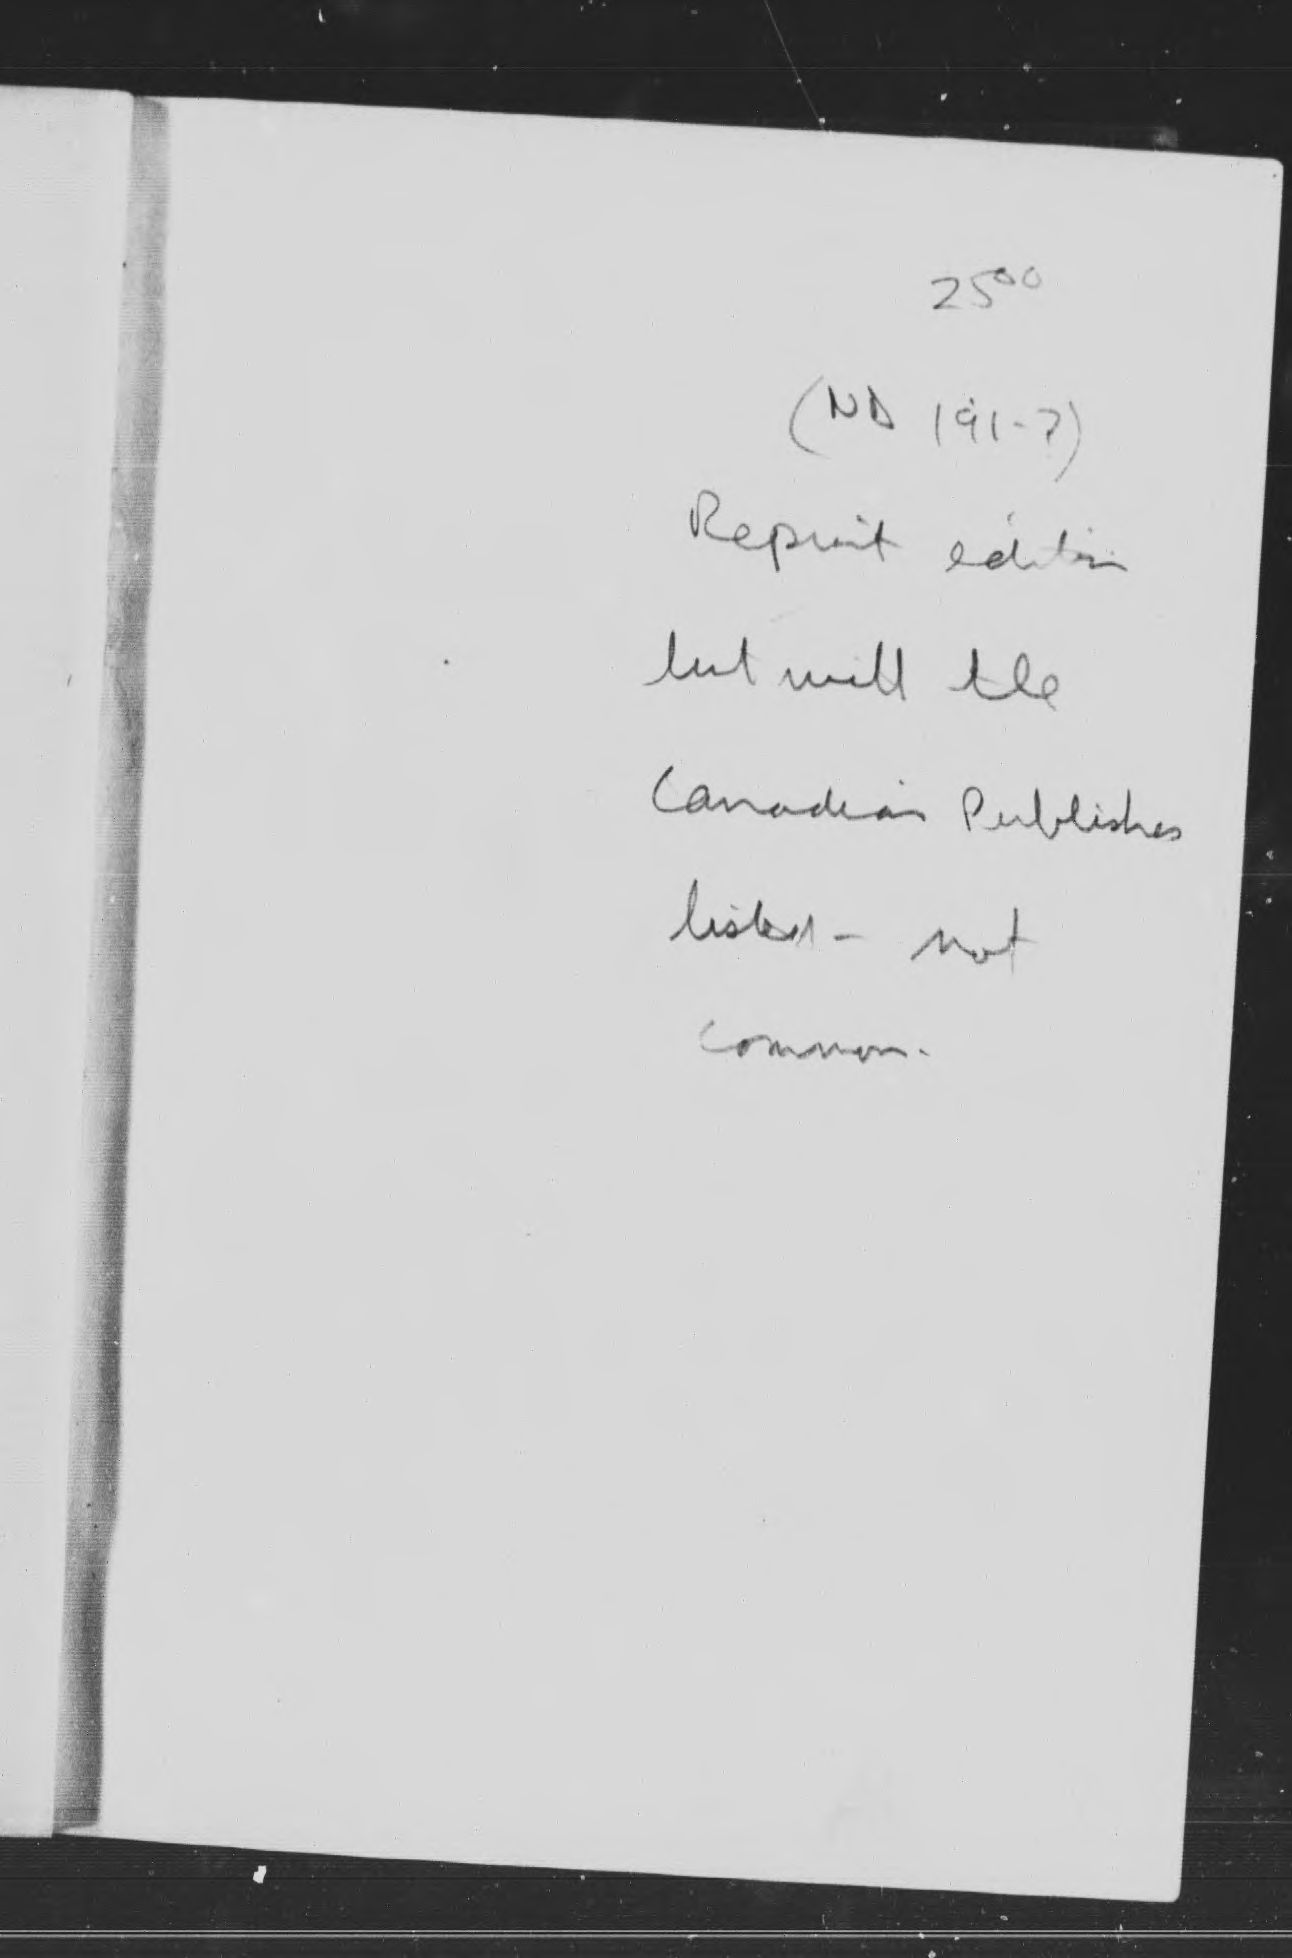 25⁰⁰
(ND 191-?)
Reprint edition
but with the
Canadian Publisher
listed - not
common.